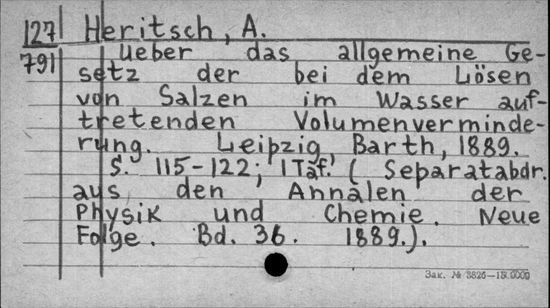 127 Heritsch, A.
791 Ueber das allgemeine Ge-
setz der bei dem Lösen
von Salzen im Wasser auf-
tretenden Volumenverminde-
rung. Leipzig, Barth, 1889.
S. 115-122; 1 Taf. ( Separatabdr.
aus den Annalen der
Physik und Chemie. Neue
Folge. Bd. 36. 1889.).
Зак. № 3826—15.0000